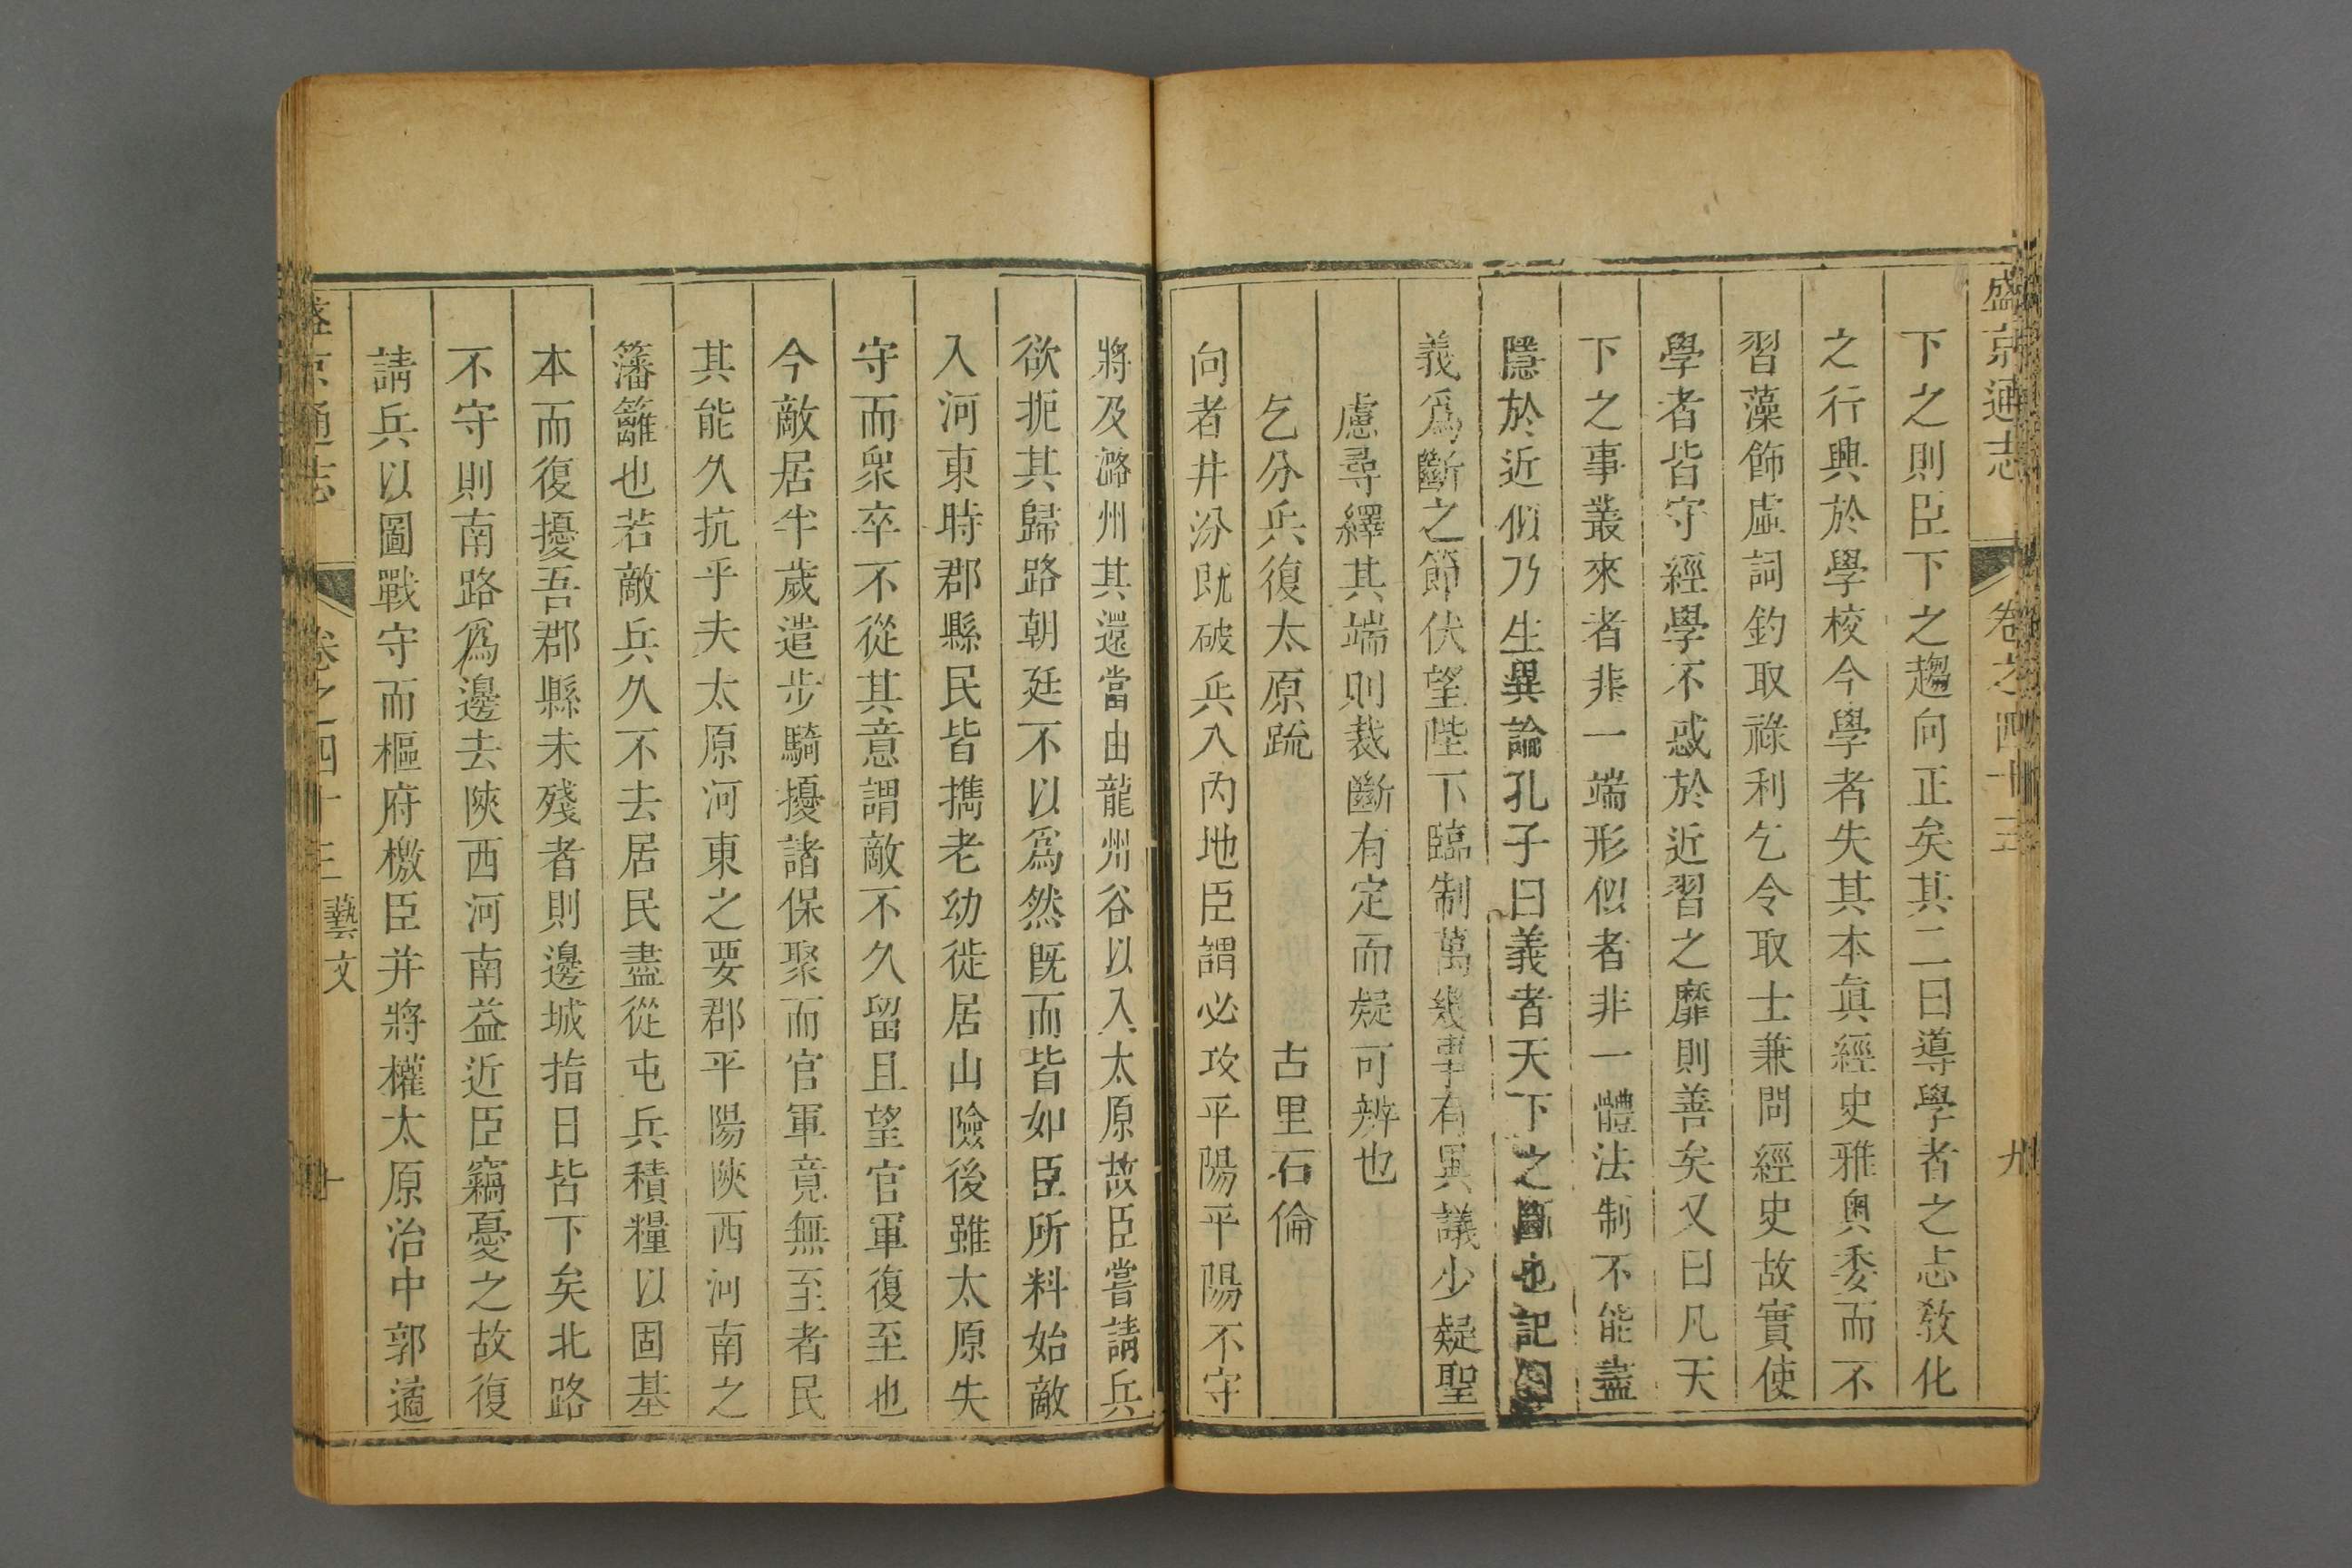 盛京通志 卷之四十三 九
下之則臣下之趨向正矣其二曰導學者之志敎化
之行興於學校今學者失其本眞經史雅奥委而不
習藻飾虛詞釣取祿利乞令取士兼問經史故實使
學者皆守經學不惑於近習之靡則善矣又曰凡天
下之事叢來者非一端形似者非一體法制不能盡
隱於近似乃生異論孔子曰義者天下之斷也記曰
義爲斷之節伏望陛下臨制萬幾事有異議少凝聖
慮尋繹其端則裁斷有定而疑可辨也
乞分兵復太原疏 古里石倫
向者井汾既破兵入内地臣謂必攻平陽平陽不守
將及潞州其還當由龍州谷以入太原故臣嘗請兵
欲扼其歸路朝廷不以爲然既而皆如臣所料始敵
入河東時郡縣民皆攜老幼徙居山險後雖太原失
守而衆卒不從其意謂敵不久留且望官軍復至也
今敵居半歲遣步騎擾諸保聚而官軍竟無至者民
其能久抗乎夫太原河東之要郡平陽陝西河南之
籓籬也若敵兵久不去居民盡從屯兵積糧以固基
本而復擾吾郡縣未殘者則邊城指日皆下矣北路
不守則南路爲邊去陝西河南益近臣竊憂之故復
請兵以圖戰守而樞府檄臣并將權太原治中郭遹
盛京通志 卷之四十三 藝文 十